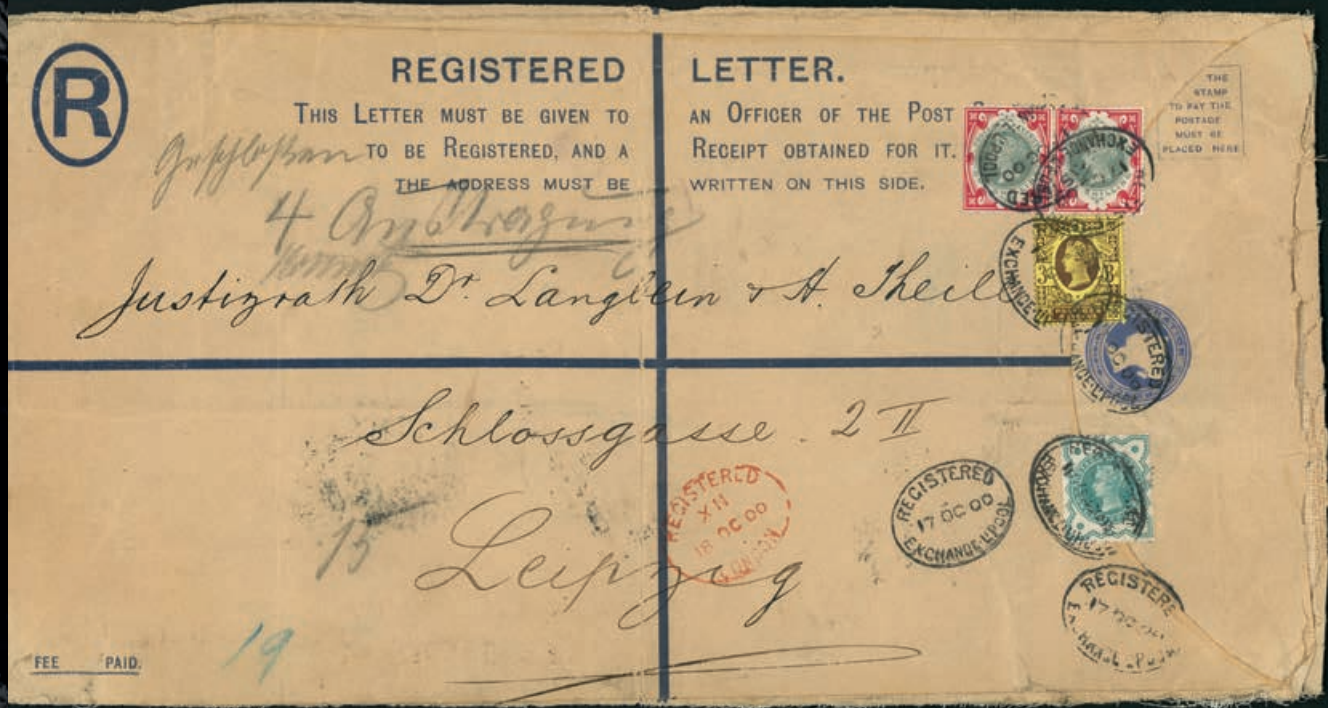 R
REGISTERED LETTER.
THIS LETTER MUST BE GIVEN TO AN OFFICER OF THE POST
TO BE REGISTERED, AND A RECEIPT OBTAINED FOR IT.
THE ADDRESS MUST BE WRITTEN ON THIS SIDE.
THE
STAMP
TO PAY THE
POSTAGE
MUST BE
PLACED HERE
Geschlossen
4
Justizrath Dr. Langbein & A. Theill
Schlossgasse. 2 II
Leipzig
REGISTERED
X II
18 OC 00
LONDON
REGISTERED
17 OC 00
EXCHANGE L'POOL
REGISTERE
15
19
FEE PAID.